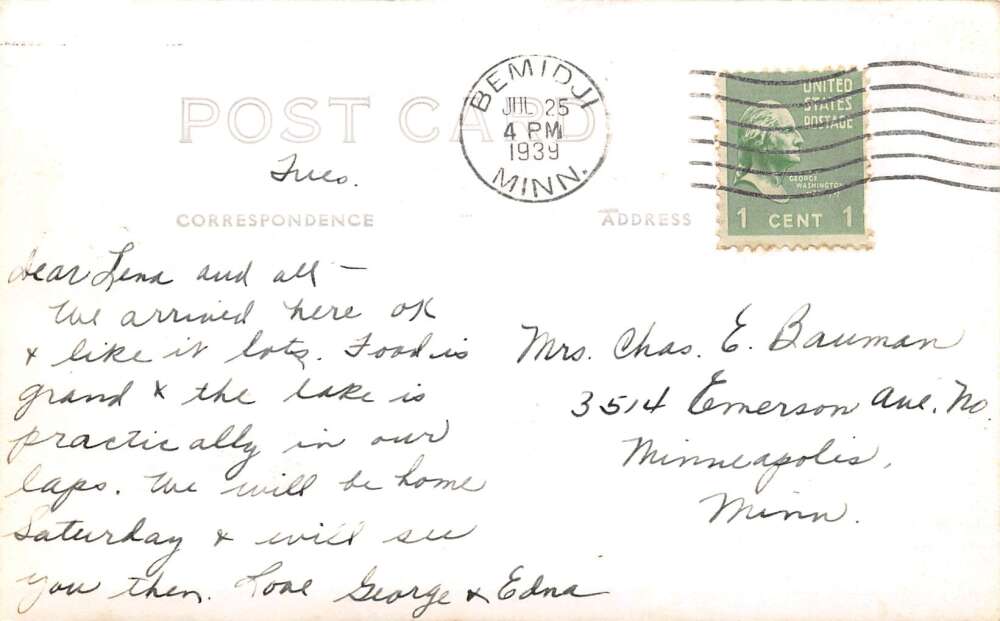 POST CARD
BEMIDJI
JUL 25
4 PM
1939
MINN.
UNITED
STATES
POSTAGE
GEORGE
WASHINGTON
1 CENT 1
Tues.
CORRESPONDENCE
ADDRESS
Dear Lena and all —
We arrived here OK
& like it lots. Food is
grand & the lake is
practically in our
laps. We will be home
Saturday & will see
you then. Love George & Edna
Mrs. Chas. E. Bauman
3514 Emerson Ave. No.
Minneapolis,
Minn.